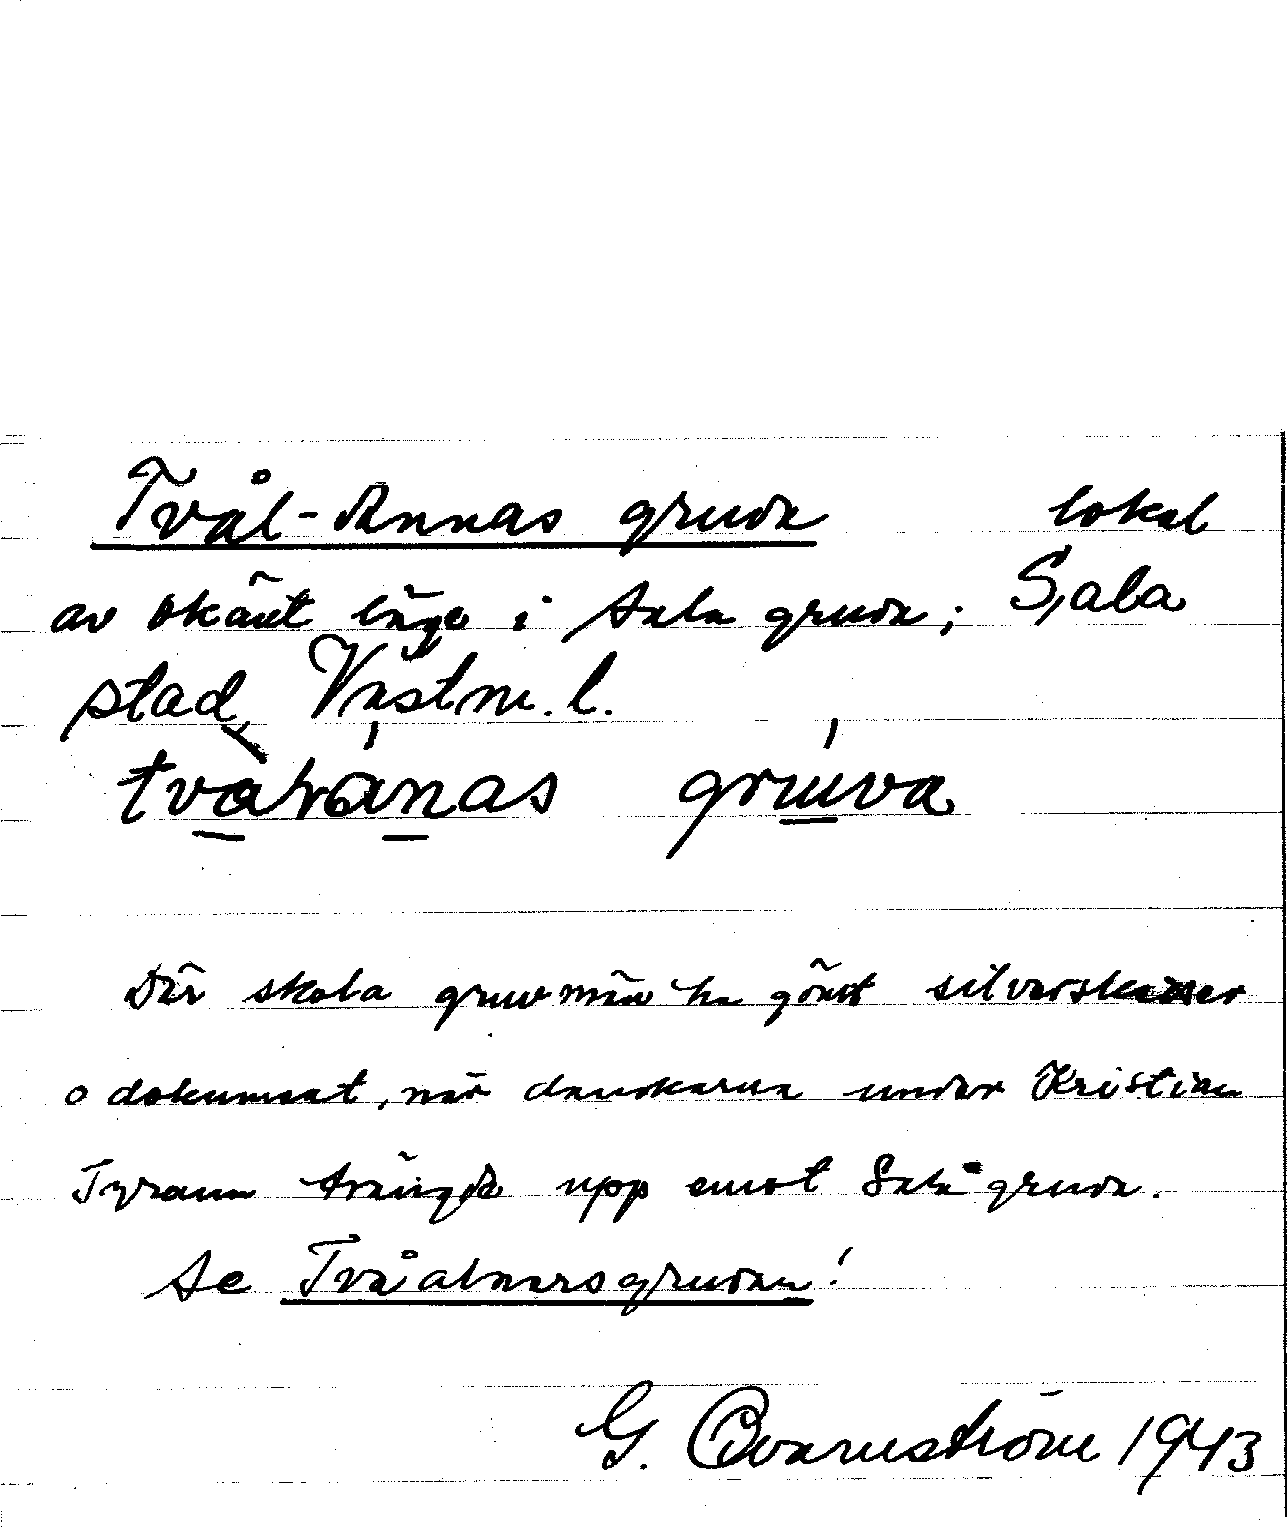 Tvål-Annas gruva lokal
av okänt läge i Sala gruva; Sala
stad, Västm. l.
tvålanas gruva
Där skola gruvmän ha gömt silverskatter
o dokument, när danskarna under Kristian
Tyrann trängde upp emot Sala gruva.
Se Tvåalnarsgruvan!
G. Qvarnström 1943